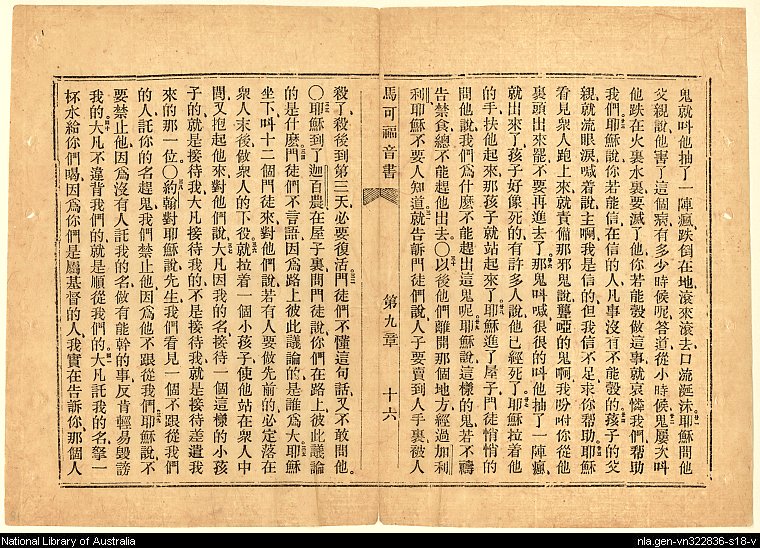 鬼就叫他抽了一陣瘋、跌倒在地、滾來滾去、口流涎沫、耶穌問他
父親說、他害了這個病有多少時候呢、答道、從小時候、鬼屢次叫
他跌在火裏水裏、要滅了他、你若能彀做這事、就哀憐我們、幫助
我們、耶穌說、你若能信、在信的人、凡事沒有不能彀的、孩子的父
親就流眼淚、喊着說、主啊、我是信的、但我信不足、求你幫助、耶穌
看見衆人跑上來、就責備那邪鬼說、聾啞的鬼啊、我吩咐你從他
裏頭出來、罷不要再進去了、那鬼叫喊、很很的叫他抽了一陣瘋、
就出來了、孩子好像死的、有許多人說、他已經死了、耶穌拉着他
的手、扶他起來、那孩子就站起來了、耶穌進了屋子、門徒悄悄的
問他說、我們爲什麼不能趕出這鬼呢、耶穌說、這樣的鬼、若不禱
告禁食、總不能趕他出去、〇以後他們離開那個地方、經過加利
利、耶穌不要人知道、就告訴門徒們說、人子要賣到人手裏、被人
馬可福音書 第九章 十六
殺了、殺後到第三天、必要復活、門徒們不懂這句話、又不敢問他。
〇耶穌到了迦百農、在屋子裏問門徒說、你們在路上彼此議論
的是什麼、門徒們不言語、因爲路上彼此議論的是誰爲大、耶穌
坐下、叫十二個門徒來、對他們說、若有人要做先前的、必定落在
衆人末後、做衆人的下役、就拉着一個小孩子、使他站在衆人中
間、又抱起他來、對他們說、大凡因我的名、接待一個這樣的小孩
子的、就是接待我、大凡接待我的、不是接待我、就是接待差遣我
來的那一位、〇約翰對耶穌說、先生、我們看見一個不跟從我們
的人、託你的名趕鬼、我們禁止他、因爲他不跟從我們、耶穌說、不
要禁止他、因爲沒有人託我的名、做有能幹的事、反肯輕易毀謗
我的、大凡不違背我們的、就是順從我們的、大凡託我的名、拏一
杯水給你們喝、因爲你們是屬基督的人、我實在告訴你、那個人
National Library of Australia
nla.gen-vn322836-s18-v